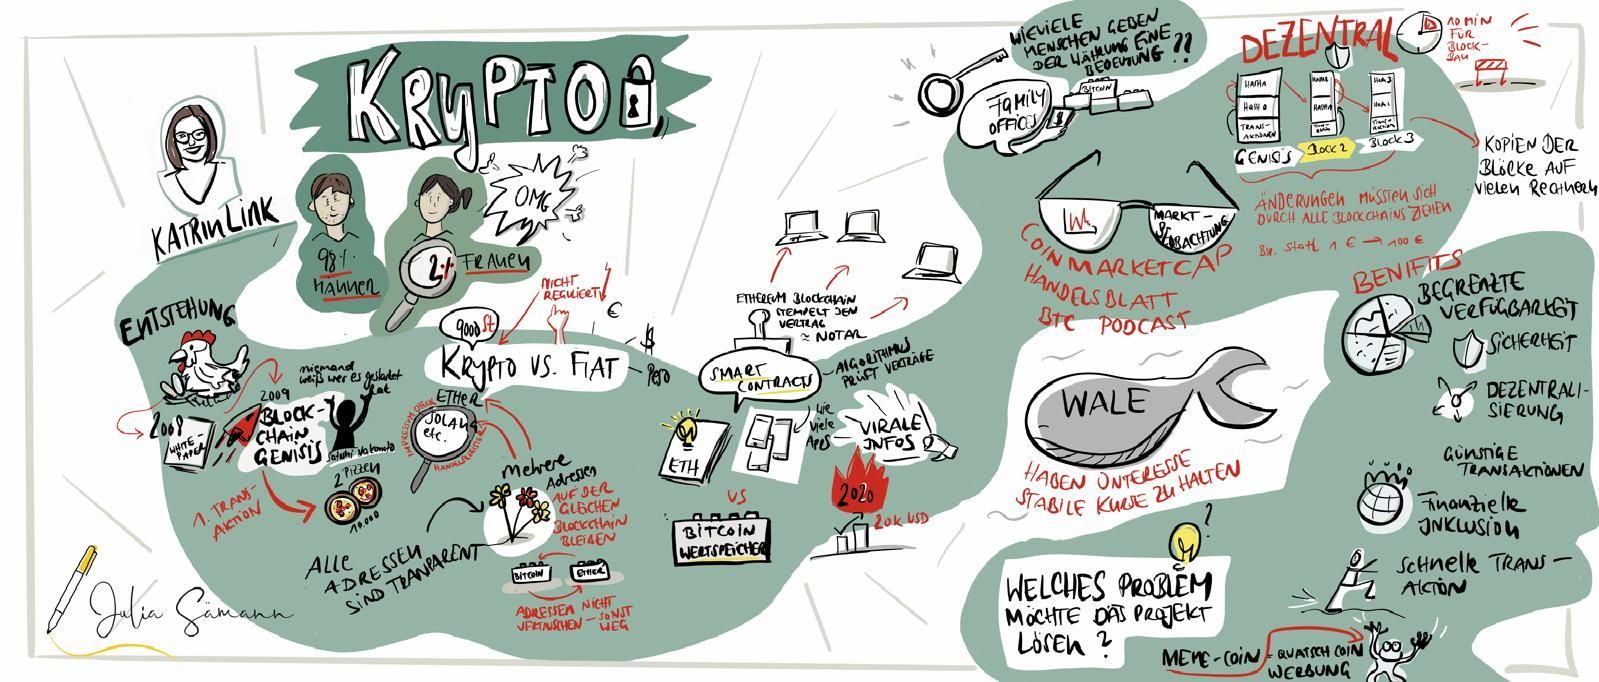 KRYPTO
KATRIN LINK
98%
MÄNNER
2%
FRAUEN
OMG
ENTSTEHUNG
2008
WHITE-
PAPER
2009
BLOCK-
CHAIN
GENISIS
niemand
weiß wer es gestartet
hat
Satoshi Nakamoto
1. TRANS-
AKTION
2 PIZZEN
10.000
ALLE
ADRESSEN
SIND TRANPARENT
Julia Sämann
9000 St
NICHT
REGULIERT
KRYPTO VS. FIAT
€
$
Peso
ETHER
SOLANA
etc.
IMPRESSUM CHECK
HANDELSREGISTER
Mehrere
Adressen
AUF DER
GLEICHEN
BLOCKCHAIN
BLEIBEN
BITCOIN
ETHER
ADRESSEN NICHT
VERTAUSCHEN – SONST
WEG
ETHEREUM BLOCKCHAIN
STEMPELT DEN
VERTRAG
= NOTAR
SMART
CONTRACTS
ALGORITHMUS
PRÜFT VERTRÄGE
ETH
Wie
viele
Apps
VS
BITCOIN
WERTSPEICHER
VIRALE
INFOS
2020
20K USD
WIEVIELE
MENSCHEN GEBEN
DER WÄHRUNG EINE
BEDEUTUNG ??
FAMILY
OFFICES
BITCOIN
MARKT-
BEOBACHTUNG
COINMARKETCAP
HANDELSBLATT
BTC PODCAST
WALE
HABEN UNTERESSE
STABILE KURSE ZU HALTEN
?
WELCHES PROBLEM
MÖCHTE DAS PROJEKT
LÖSEN ?
DEZENTRAL
10 MIN
FÜR
BLOCK-
BAU
HASH A
HASH 0
TRANS-
AKTIONEN
GENISIS
BLOCK 2
BLOCK 3
KOPIEN DER
BLÖCKE AUF
VIELEN RECHNERN
ÄNDERUNGEN MÜSSTEN SICH
DURCH ALLE BLOCKCHAINS ZIEHEN
Bsp. statt 1 € → 100 €
BENIFITS
BEGRENZTE
VERFÜGBARKEIT
SICHERHEIT
DEZENTRALI-
SIERUNG
GÜNSTIGE
TRANSAKTIONEN
FINANZIELLE
INKLUSION
SCHNELLE TRANS-
AKTION
MEME-COIN = QUATSCH COIN
WERBUNG